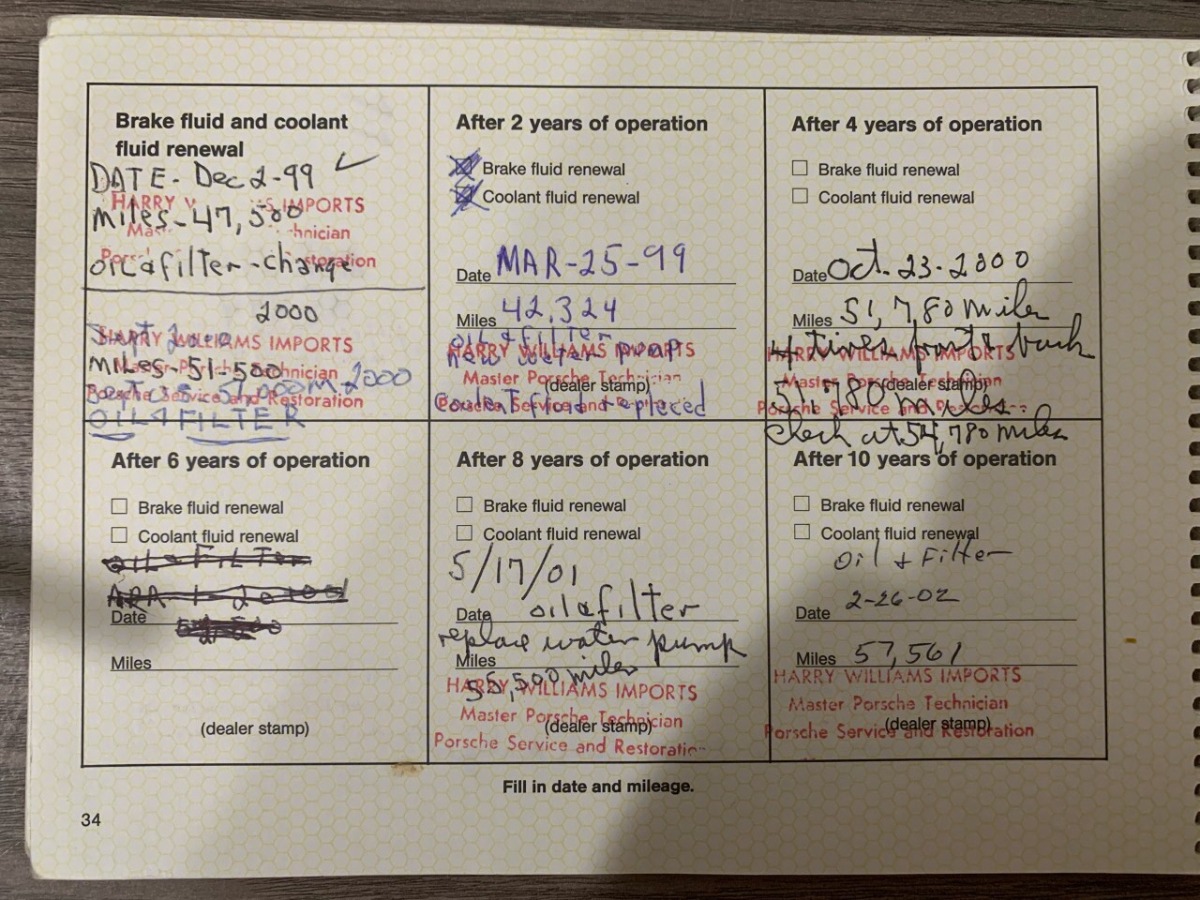 Brake fluid and coolant
fluid renewal
DATE - Dec 2-99
HARRY W S IMPORTS
miles - 47,500
Mas hnician
Pors storation
oil & filter - change
2000
Sept 2000
HARRY WILLIAMS IMPORTS
MILES - 51-500
Master Porsche Technician
2000
Porsche Service and Restoration
OIL & FILTER
After 2 years of operation
Brake fluid renewal
Coolant fluid renewal
Date MAR-25-99
Miles 42,324
oil & filter
HARRY WILLIAMS IMPORTS
new water pump
Master Porsche Technician
(dealer stamp)
Porsche Service and
Coolant fluid replaced
After 4 years of operation
Brake fluid renewal
Coolant fluid renewal
Date Oct. 23-2000
Miles 51,780 miles
4 tires front & back
HARRY WILLIAMS IMPORTS
Master Porsche Technician
(dealer stamp)
51,780 miles
Porsche Service and
check at 54,780 miles
After 6 years of operation
Brake fluid renewal
Coolant fluid renewal
OIL & FILTER
Date
Miles
(dealer stamp)
After 8 years of operation
Brake fluid renewal
Coolant fluid renewal
5/17/01
Date oil & filter
replace water pump
Miles
55,500 miles
HARRY WILLIAMS IMPORTS
Master Porsche Technician
(dealer stamp)
Porsche Service and Restoratio
After 10 years of operation
Brake fluid renewal
Coolant fluid renewal
Oil + Filter
Date 2-26-02
Miles 57,561
HARRY WILLIAMS IMPORTS
Master Porsche Technician
(dealer stamp)
Porsche Service and Restoration
Fill in date and mileage.
34